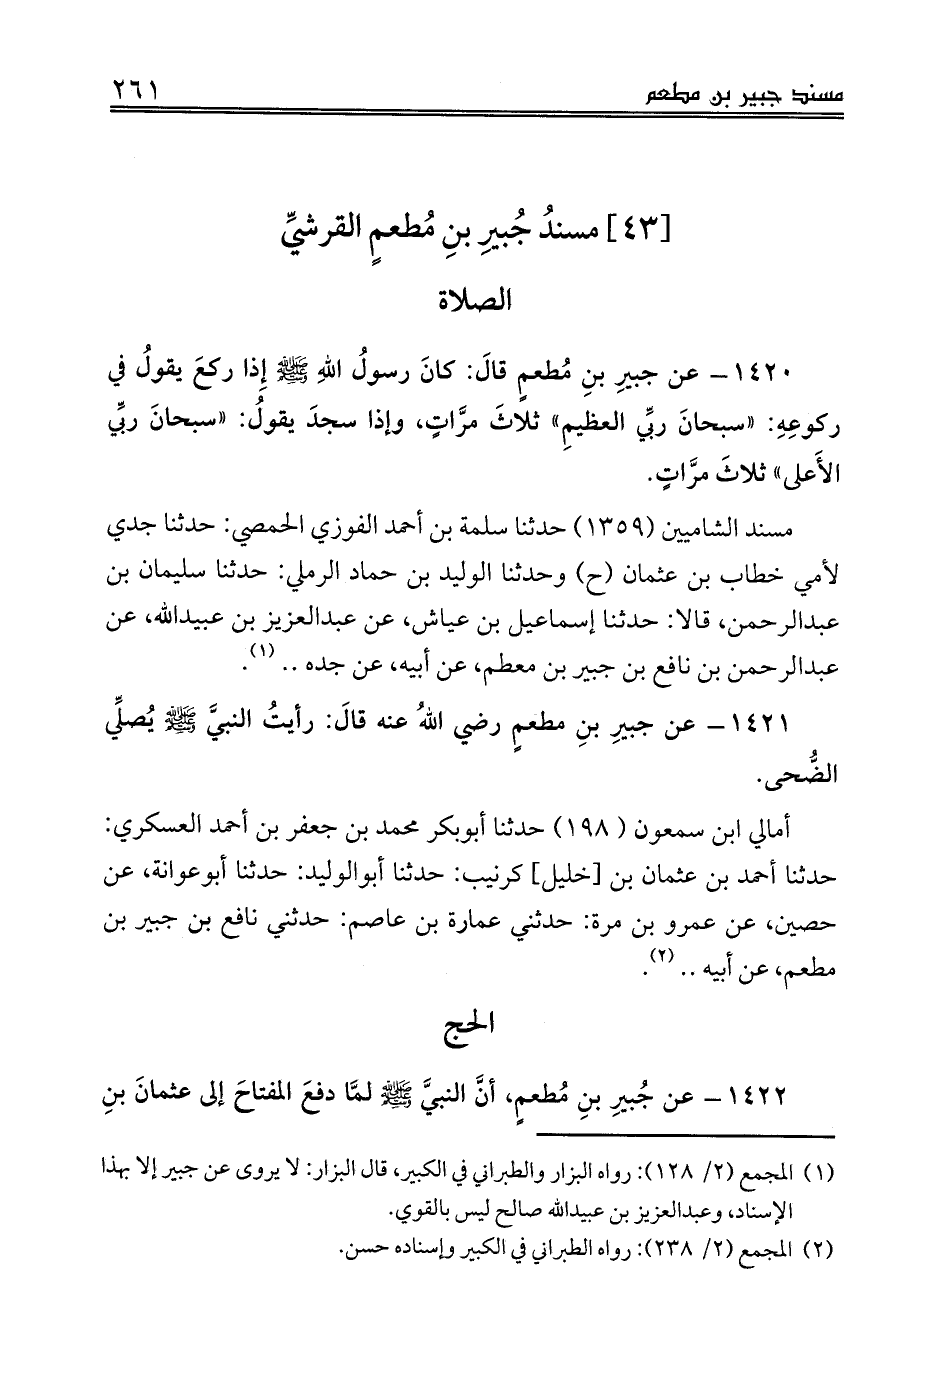 مسند جبير بن مطعم ٢٦١
[٤٣] مسندُ جُبيرِ بنِ مُطعمٍ القرشيِّ
الصلاة
١٤٢٠ – عن جبيرِ بنِ مُطعمٍ قالَ: كانَ رسولُ اللهِ ﷺ إِذا ركعَ يقولُ في
ركوعِهِ: «سبحانَ ربِّي العظيمِ» ثلاثَ مرَّاتٍ، وإذا سجدَ يقولُ: «سبحانَ ربِّي
الأَعلى» ثلاثَ مرَّاتٍ.
مسند الشاميين (١٣٥٩) حدثنا سلمة بن أحمد الفوزي الحمصي: حدثنا جدي
لأمي خطاب بن عثمان (ح) وحدثنا الوليد بن حماد الرملي: حدثنا سليمان بن
عبدالرحمن، قالا: حدثنا إسماعيل بن عياش، عن عبدالعزيز بن عبيدالله، عن
عبدالرحمن بن نافع بن جبير بن معطم، عن أبيه، عن جده .. (١).
١٤٢١ – عن جبيرِ بنِ مطعمٍ رضي اللهُ عنه قالَ: رأيتُ النبيَّ ﷺ يُصلِّي
الضُّحى.
أمالي ابن سمعون ( ١٩٨) حدثنا أبوبكر محمد بن جعفر بن أحمد العسكري:
حدثنا أحمد بن عثمان بن [خليل] كرنيب: حدثنا أبوالوليد: حدثنا أبوعوانة، عن
حصين، عن عمرو بن مرة: حدثني عمارة بن عاصم: حدثني نافع بن جبير بن
مطعم، عن أبيه .. (٢).
الحج
١٤٢٢ – عن جُبيرِ بنِ مُطعمٍ، أنَّ النبيَّ ﷺ لمَّا دفعَ المفتاحَ إلى عثمانَ بنِ
(١) المجمع (٢/ ١٢٨): رواه البزار والطبراني في الكبير، قال البزار: لا يروى عن جبير إلا بهذا
الإسناد، وعبدالعزيز بن عبيدالله صالح ليس بالقوي.
(٢) المجمع (٢/ ٢٣٨): رواه الطبراني في الكبير وإسناده حسن.